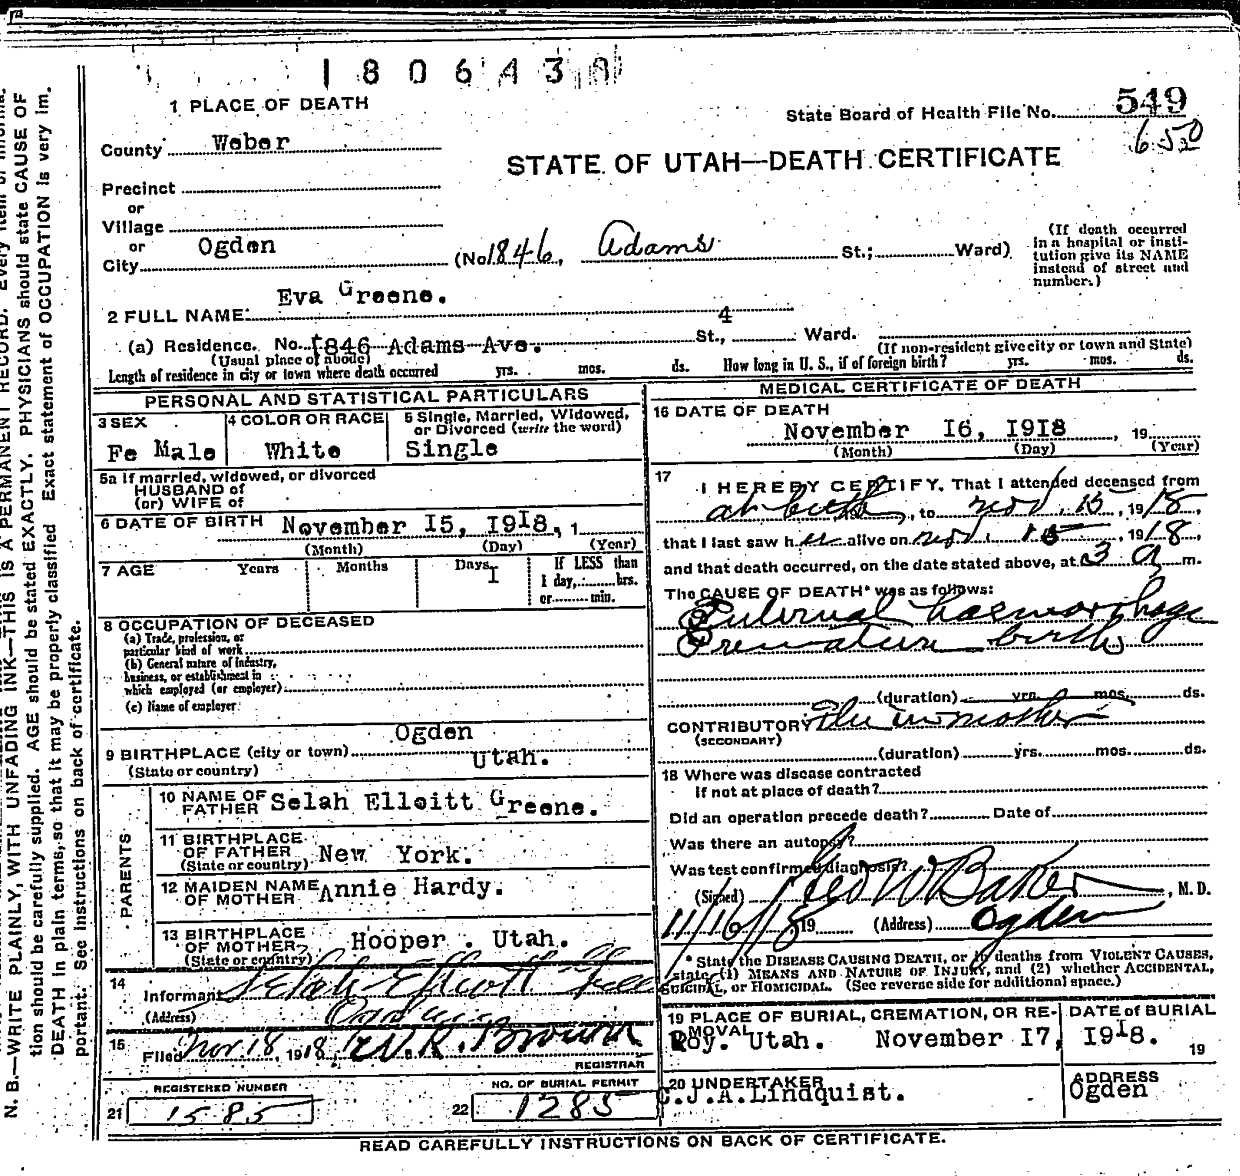 1 8 0 6 4 3 0
1 PLACE OF DEATH
State Board of Health File No. 549
650
County Weber
STATE OF UTAH—DEATH CERTIFICATE
Precinct
or
Village
or
City Ogden (No. 1846, Adams St.; Ward)
(If death occurred in a hospital or insti-
tution give its NAME
instead of street and
number.)
2 FULL NAME: Eva Greene.
(a) Residence. No. 1846 Adams Ave. St., 4 Ward.
(Usual place of abode) (If non-resident give city or town and State)
Length of residence in city or town where death occurred yrs. mos. ds. How long in U. S., if of foreign birth? yrs. mos. ds.
PERSONAL AND STATISTICAL PARTICULARS
3 SEX Fe Male
4 COLOR OR RACE White
5 Single, Married, Widowed,
or Divorced (write the word)
Single
5a If married, widowed, or divorced
HUSBAND of
(or) WIFE of
6 DATE OF BIRTH November 15, 1918, 1
(Month) (Day) (Year)
7 AGE Years Months Days 1 If LESS than
1 day, hrs.
or min.
8 OCCUPATION OF DECEASED
(a) Trade, profession, or
particular kind of work
(b) General nature of industry,
business, or establishment in
which employed (or employer)
(c) Name of employer
9 BIRTHPLACE (city or town) Ogden
(State or country) Utah.
PARENTS
10 NAME OF
FATHER Selah Elloitt Greene.
11 BIRTHPLACE
OF FATHER
(State or country) New York.
12 MAIDEN NAME
OF MOTHER Annie Hardy.
13 BIRTHPLACE
OF MOTHER
(State or country) Hooper . Utah.
14
Informant Selah Elliott
(Address) Ogden
15 Filed Nov 18, 1918 W.R. Brown
REGISTRAR
REGISTERED NUMBER
21 1585
NO. OF BURIAL PERMIT
22 1285
MEDICAL CERTIFICATE OF DEATH
16 DATE OF DEATH
November 16, 1918, 19
(Month) (Day) (Year)
17
I HEREBY CERTIFY, That I attended deceased from
at birth, to Nov. 15, 1918
that I last saw her alive on Nov. 15, 1918
and that death occurred, on the date stated above, at 3 a m.
The CAUSE OF DEATH* was as follows:
Internal haemorrhage
Premature birth
(duration) yrs. mos. ds.
CONTRIBUTORY Flu in mother
(SECONDARY)
(duration) yrs. mos. ds.
18 Where was disease contracted
if not at place of death?
Did an operation precede death? Date of
Was there an autopsy?
Was test confirmed diagnosis?
(Signed) Geo W Baker, M. D.
11/16/18 19 (Address) Ogden
* State the DISEASE CAUSING DEATH, or in deaths from VIOLENT CAUSES,
state (1) MEANS AND NATURE OF INJURY, and (2) whether ACCIDENTAL,
SUICIDAL, or HOMICIDAL. (See reverse side for additional space.)
19 PLACE OF BURIAL, CREMATION, OR RE-
MOVAL
DATE of BURIAL
Roy. Utah. November 17, 1918. 19
20 UNDERTAKER
C.J.A.Lindquist.
ADDRESS
Ogden
READ CAREFULLY INSTRUCTIONS ON BACK OF CERTIFICATE.
N. B.—WRITE PLAINLY, WITH UNFADING INK—THIS IS A PERMANENT RECORD. Every item of informa-
tion should be carefully supplied. AGE should be stated EXACTLY. PHYSICIANS should state CAUSE OF
DEATH in plain terms, so that it may be properly classified. Exact statement of OCCUPATION is very im-
portant. See instructions on back of certificate.